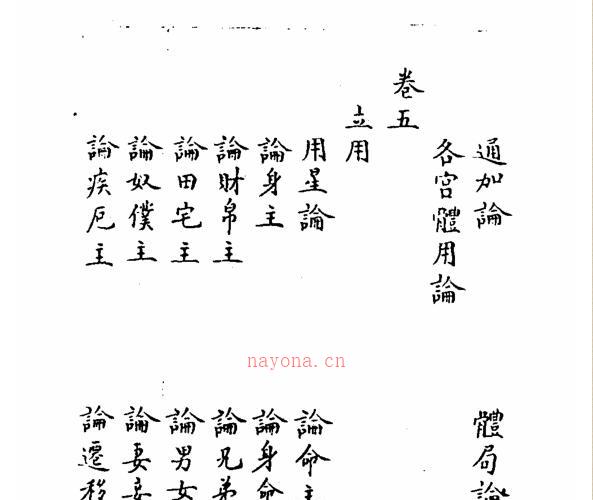 通加論 體局論
各宮體用論
卷五
立用
用星論 論命主
論身主 論身命
論財帛主 論兄弟
論田宅主 論男女
論奴僕主 論妻妾
論疾厄主 論遷移
nayona.cn